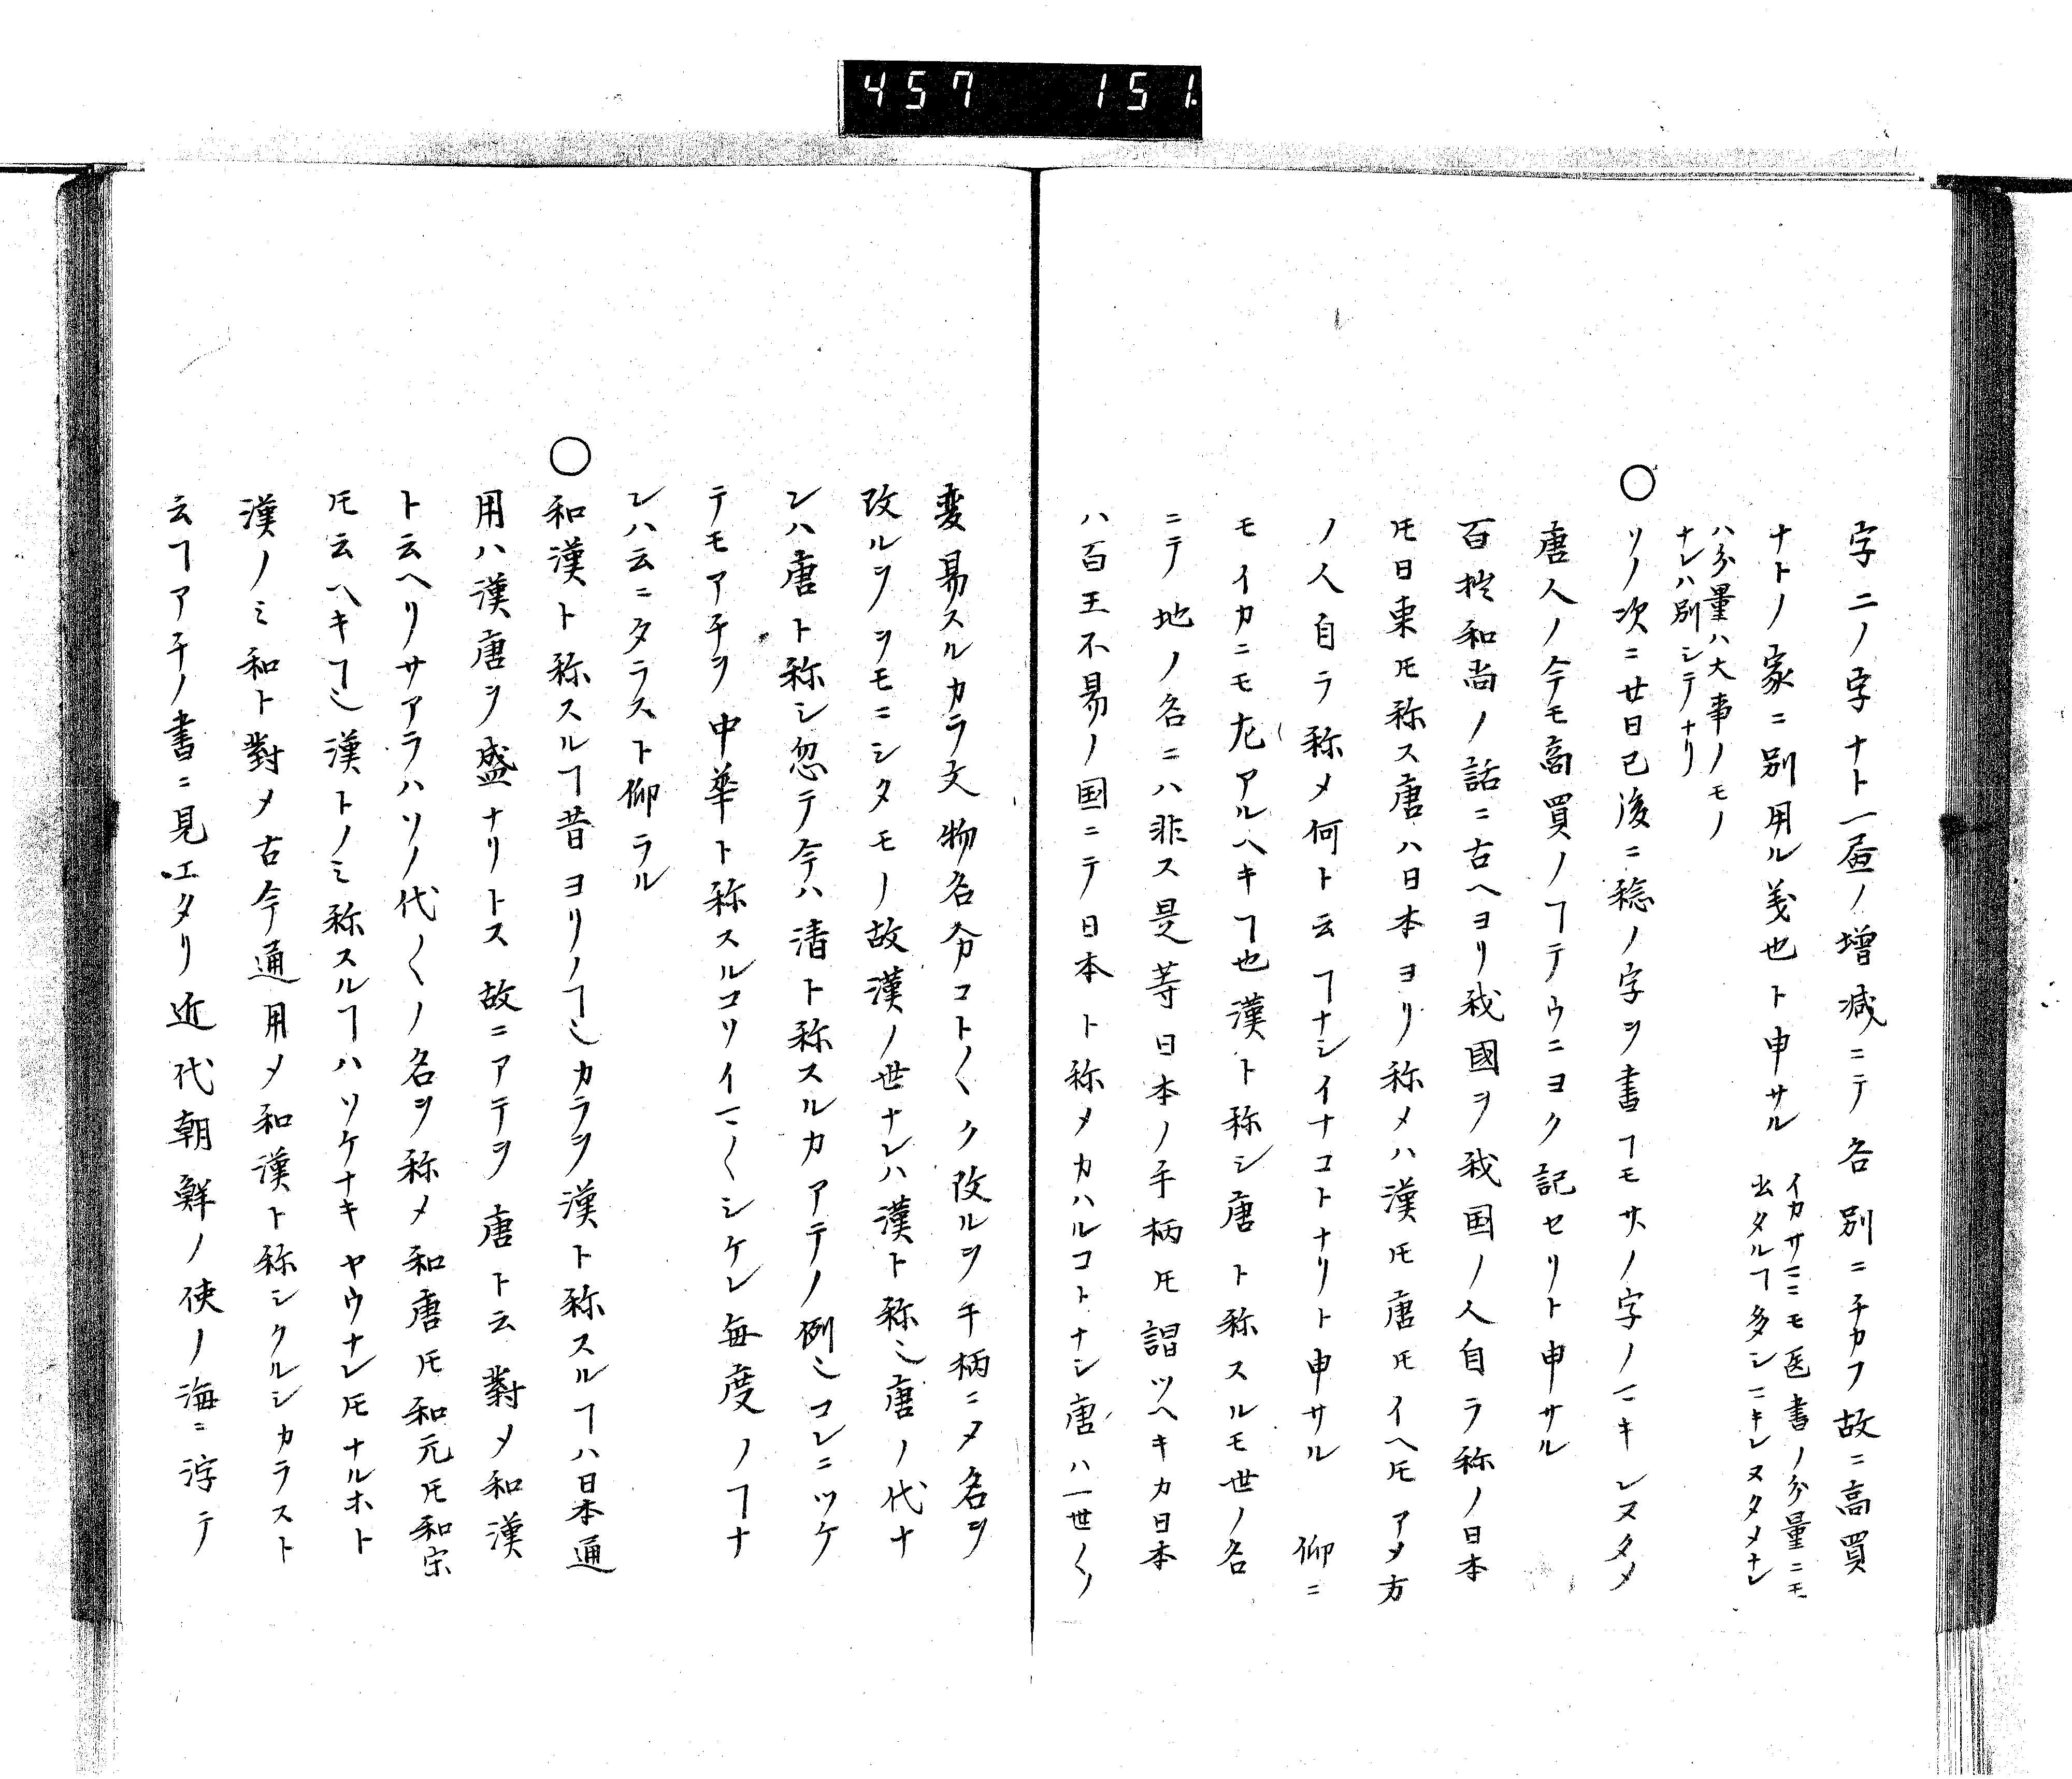 457 151
字二ノ字ナト一畫ノ増减ニテ各別ニチカフ故ニ高買
ナトノ家ニ別用ル義也ト申サル
イカサマニモ医書ノ分量ニモ
出タルヿ多シマキレヌタメナレ
ハ分量ハ大事ノモノ
ナレハ別シテナリ
〇ソノ次ニ廿日已後ニ稔ノ字ヲ書ヿモサノ字ノマキレヌタメ
唐人ノ今モ高買ノヿテウニヨク記セリト申サル
百拙和尚ノ話ニ古ヘヨリ我國ヲ我国ノ人自ラ称ノ日本
𪜈日東𪜈称ス唐ハ日本ヨリ称メハ漢𪜈唐𪜈イヘ𪜈アノ方
ノ人自ラ称メ何ト云ヿナシイナコトナリト申サル 仰ニ
モイカニモ尤アルヘキヿ也漢ト称シ唐ト称スルモ世ノ名
ニテ地ノ名ニハ非ス是等日本ノ手柄𪜈謂ツヘキカ日本
ハ百王不易ノ国ニテ日本ト称メカハルコトナシ唐ハ一世〱
変易スルカラ文物名分コト〱ク改ルヲ手柄ニヌ名ヲ
改ルヲヲモニシタモノ故漢ノ世ナレハ漢ト称シ唐ノ代ナ
レハ唐ト称シ忽テ今ハ清ト称スルカアテノ例シコレニツケ
テモアチヲ中華ト称スルコソイマ〱シケレ毎度ノヿナ
レハ云ニタラスト仰ラル
〇和漢ト称スルヿ昔ヨリノヿシカラヲ漢ト称スルヿハ日本通
用ハ漢唐ヲ盛ナリトス故ニアテヲ唐ト云對メ和漢
ト云ヘリサアラハソノ代〱ノ名ヲ称メ和唐𪜈和元𪜈和宋
𪜈云ヘキヿシ漢トノミ称スルヿハツケナキヤウナレ𪜈ナルホト
漢ノミ和ト對メ古今通用メ和漢ト称シクルシカラスト
云ヿアチノ書ニ見エタリ近代朝鮮ノ使ノ海ニ浮テ